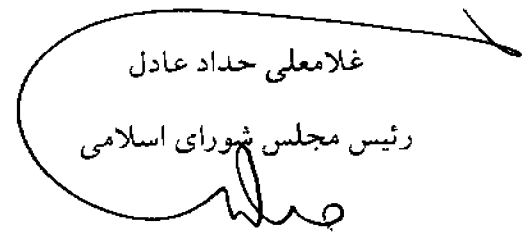 غلامعلی حداد عادل
رئیس مجلس شورای اسلامی